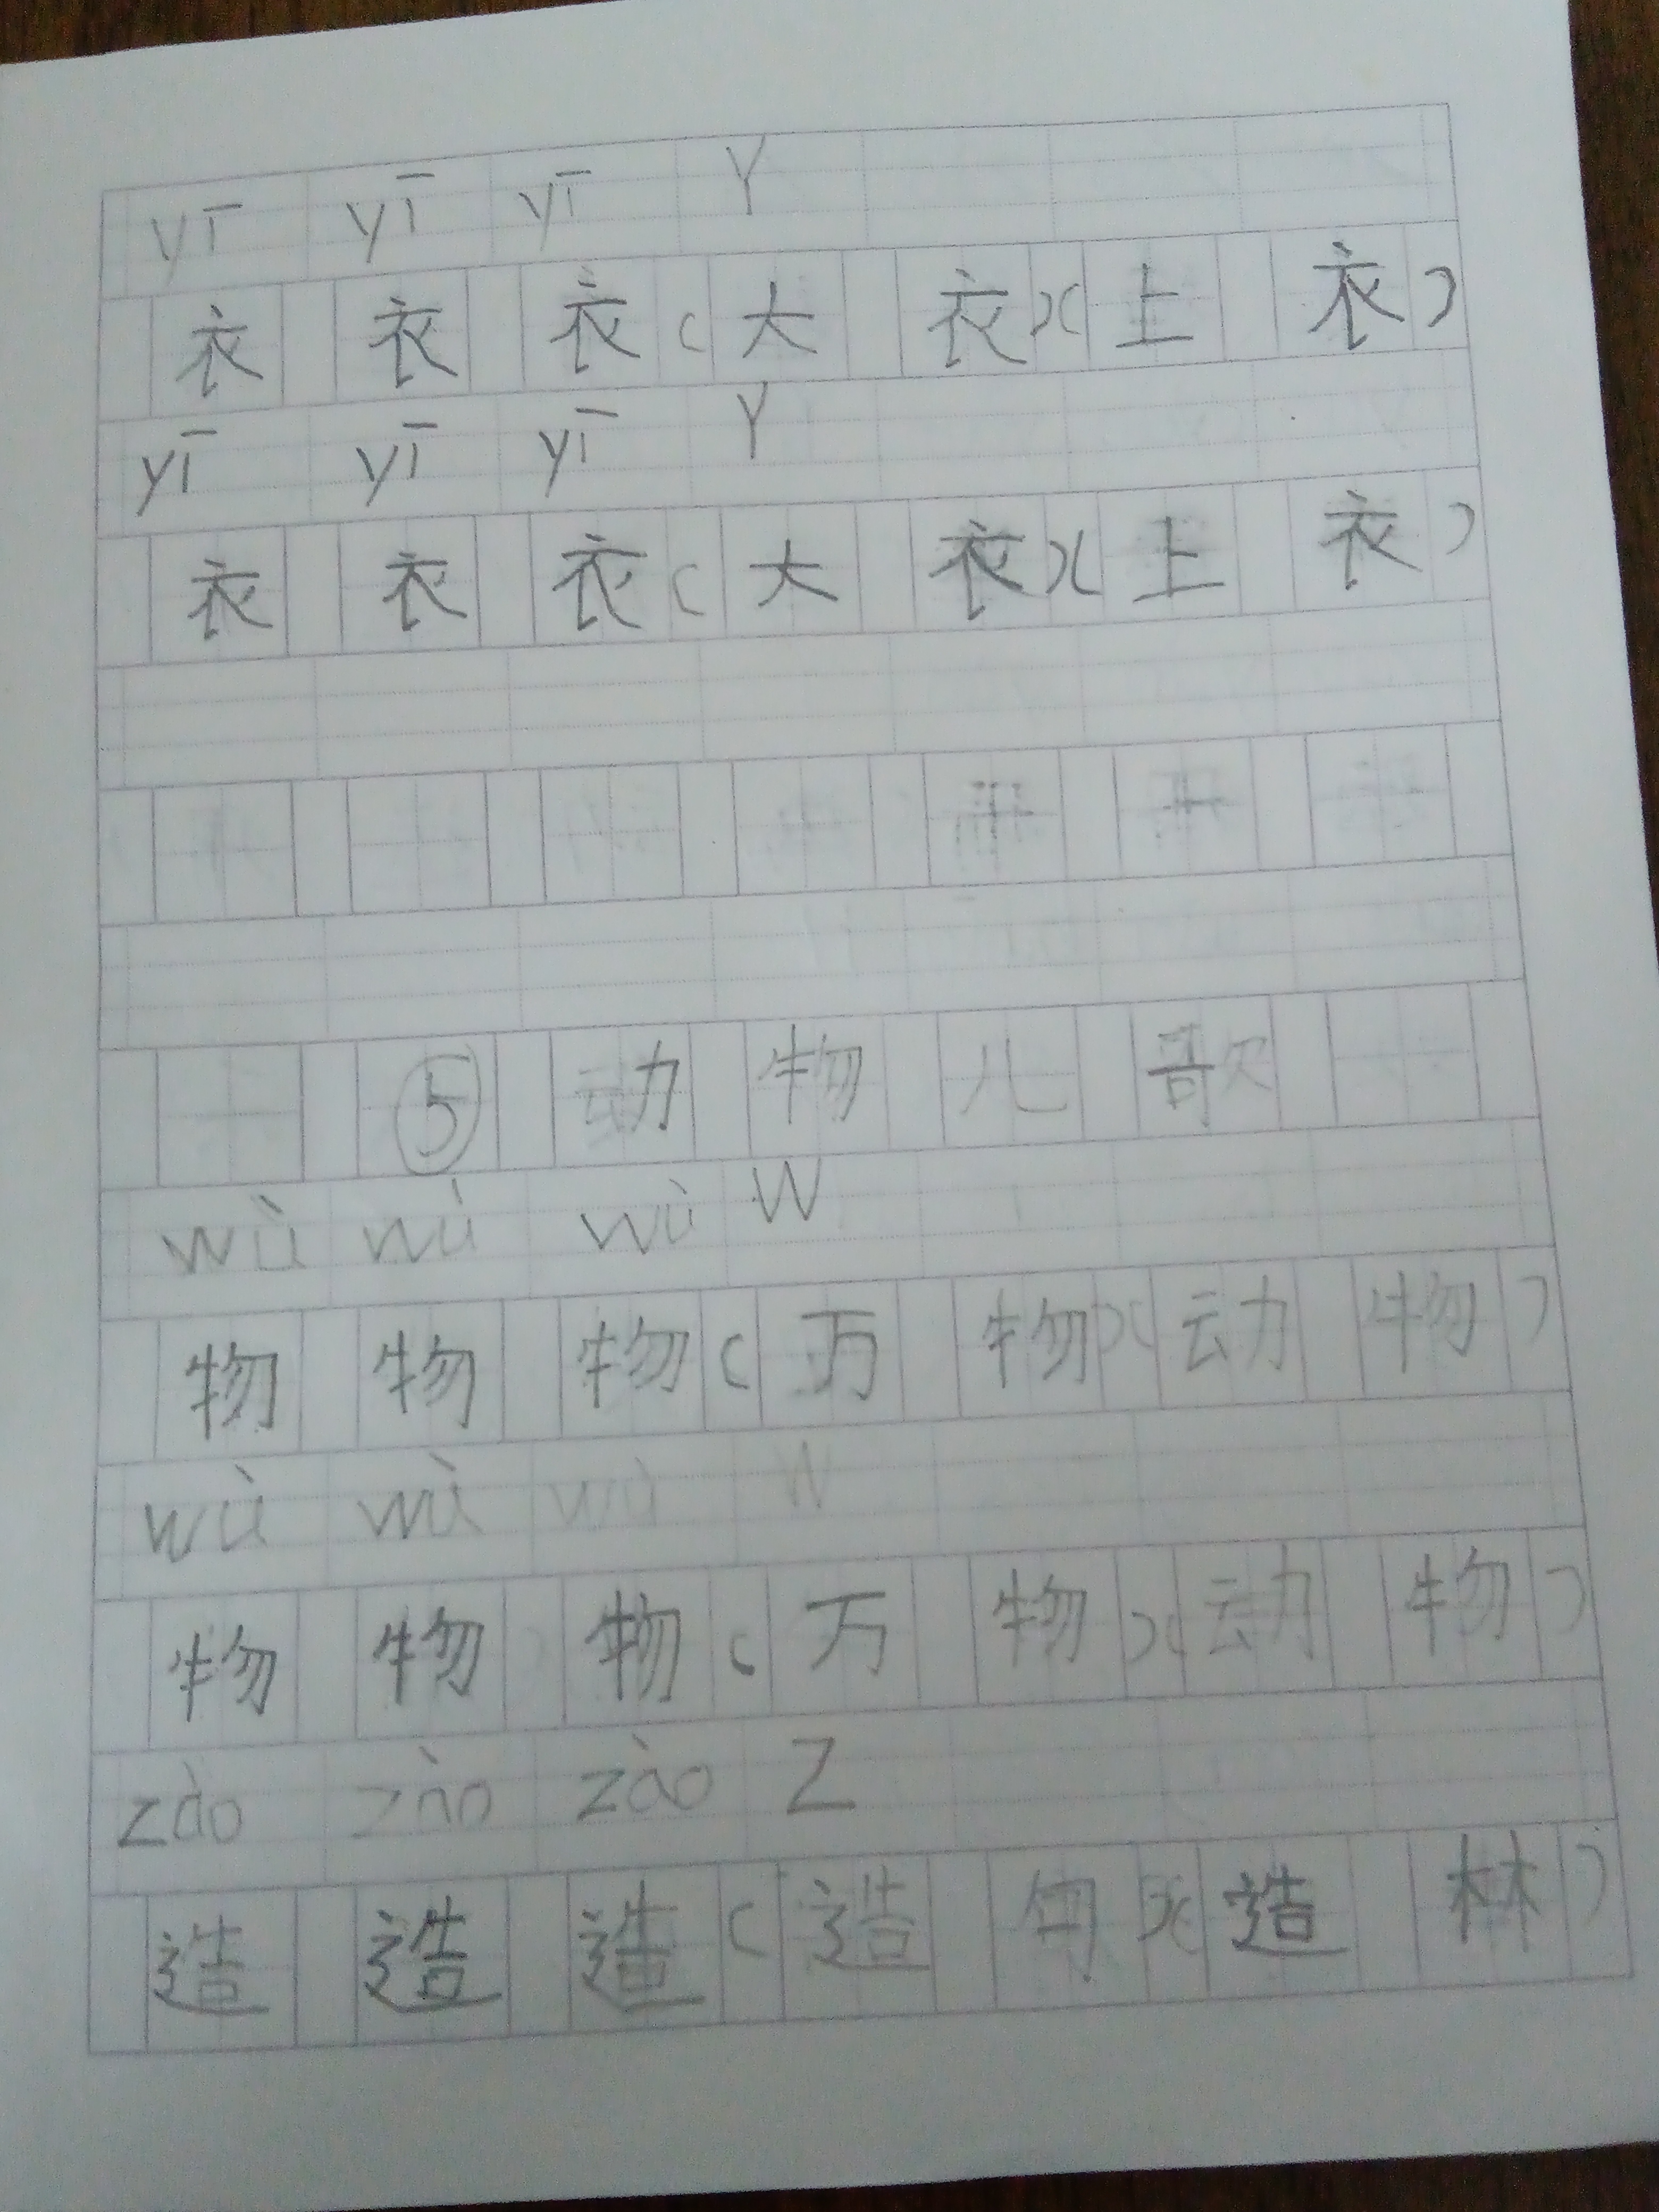 yī yī yī Y
衣 衣 衣(大 衣)(上 衣)
yī yī yī Y
衣 衣 衣(大 衣)(上 衣)
⑤ 动 物 儿 歌
wù wù wù W
物 物 物(万 物)(动 物)
wù wù wù W
物 物 物(万 物)(动 物)
zào zào zào Z
造 造 造(造 句)(造 林)